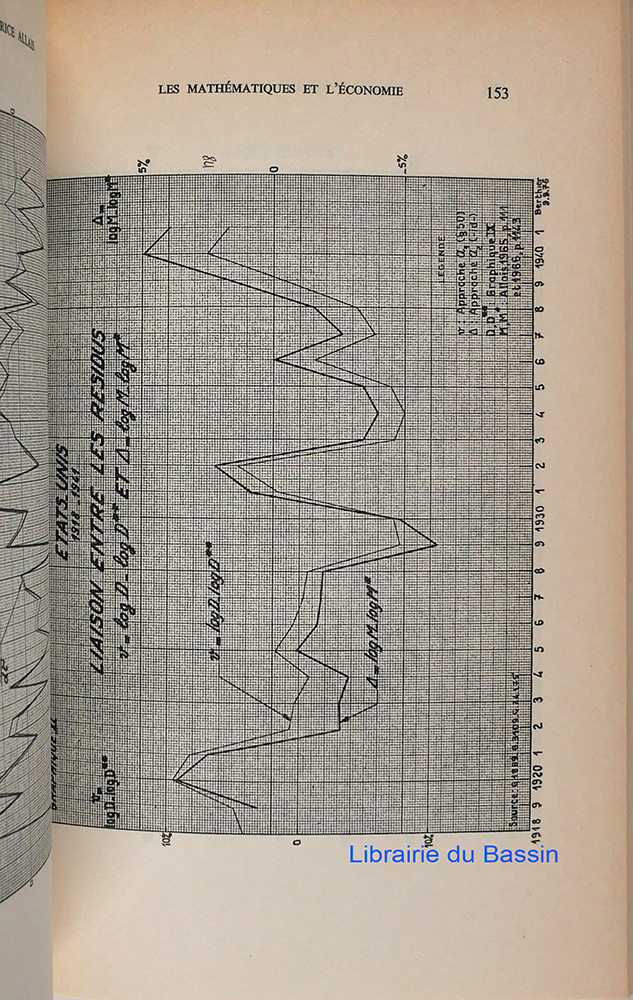 RICE ALLAIS
LES MATHÉMATIQUES ET L'ÉCONOMIE 153
ETATS UNIS
1918 _ 1941
LIAISON ENTRE LES RESIDUS
v = log D _ log D** ET Δ = log M _ log M*
v =
log D _ log D**
Δ =
log M _ log M*
5%
0
_5%
v = log D _ log D**
Δ = log M _ log M*
LÉGENDE
v Approche
Δ Approche
D, D** Graphique IX
M, M* Allais, 1965, p. 111
et 1966, p. 1143
10%
0
10%
1918 9 1920 1 2 3 4 5 6 7 8 9 1930 1 2 3 4 5 6 7 8 9 1940 1
Berthier
9.9.76
Librairie du Bassin